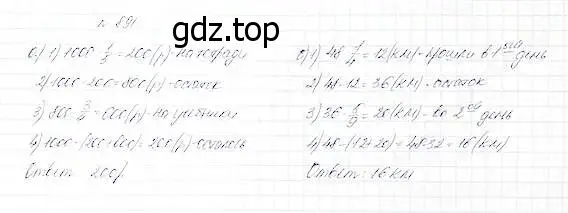 № 891
gdz.top
а) 1) 1000 · 1/5 = 200 (р) - на тетради
2) 1000 - 200 = 800 (р) - остаток
3) 800 · 3/4 = 600 (р) - на учебники
4) 1000 - (200 + 600) = 200 (р) - осталось
Ответ: 200 р
б) 1) 48 · 1/4 = 12 (км) - прошли в 1ый день
2) 48 - 12 = 36 (км) - остаток
3) 36 · 5/9 = 20 (км) - во 2ой день
4) 48 - (12 + 20) = 48 - 32 = 16 (км)
Ответ: 16 км